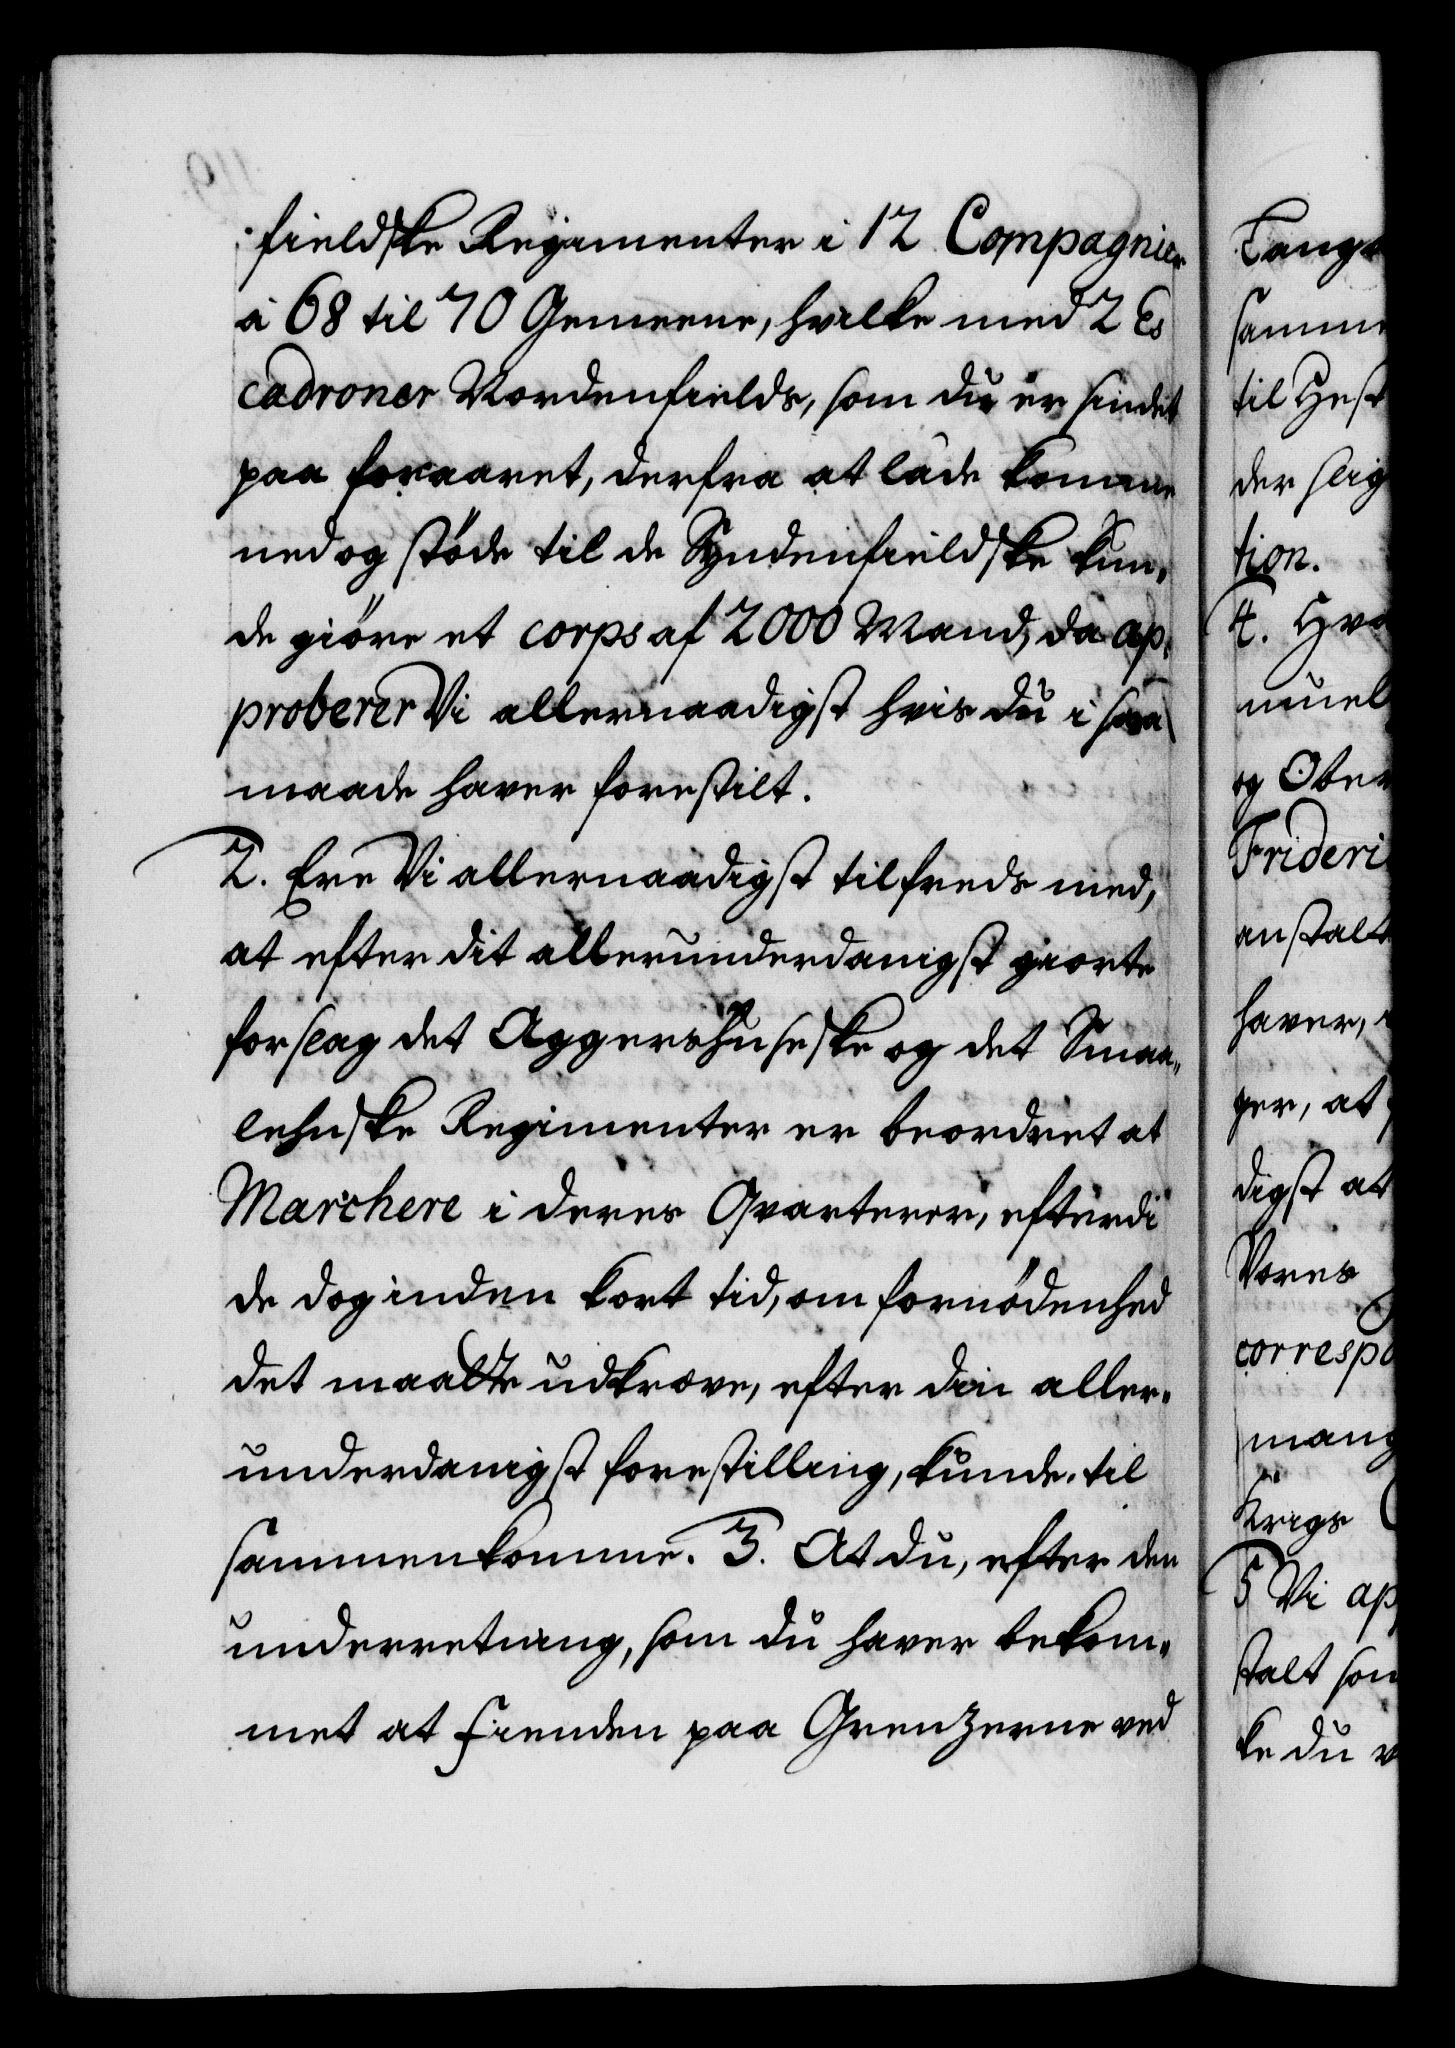 fieldske Regimenter i 12 Compagnier
à 68 til 70 Gemeene, hvilke med 2 Es
cadroner Nordenfields, som du er sindet
paa foraaret, derfra at lade komme
ned og støde til de Syndenfieldske kun,
de giøre et corps af 2000 Mand, da ap,
proberer Vi allernaadigst hvis du i saa
maade haver forestilt.
2. Ere Vi allernaadigst tilfreds med,
at efter dit allerunderdanigst giorte
forslag det Aggershuseske og det Smaa,,
lehnske Regimenter er beordret at
Marchere i deres Qvarterer, efterdi
de dog inden kort tid, om fornødenhed
det maatte udkræve, efter din aller,
underdanigst forestilling, kunde til
sammenkomme. 3. At du, efter den
underretning, som du haver bekom,
met at fienden paa Grenzerne ved
Tangt
samme
til Hest
der slig
tion.
4. Hva
muel
og Ober
Frideri
anstalt
haver,
ger, at
digst at
Vores
correspo
mang
Krigs
5 Vi ap
stalt som
ke du v